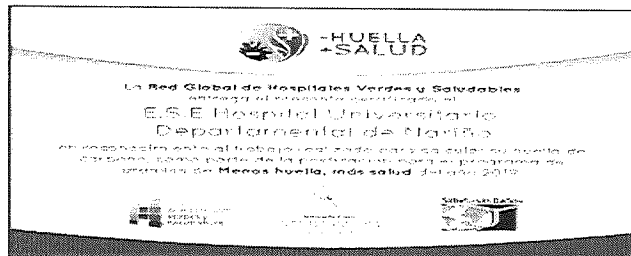 -HUELLA
+SALUD
La Red Global de Hospitales Verdes y Saludables
entrega el presente certificado al
E.S.E Hospital Universitario
Departamental de Nariño
en reconocimiento al trabajo realizado para calcular su huella de
carbono, como parte de la postulación para el programa de
premios de Menos huella, más salud del año 2019
Salud sin Daño